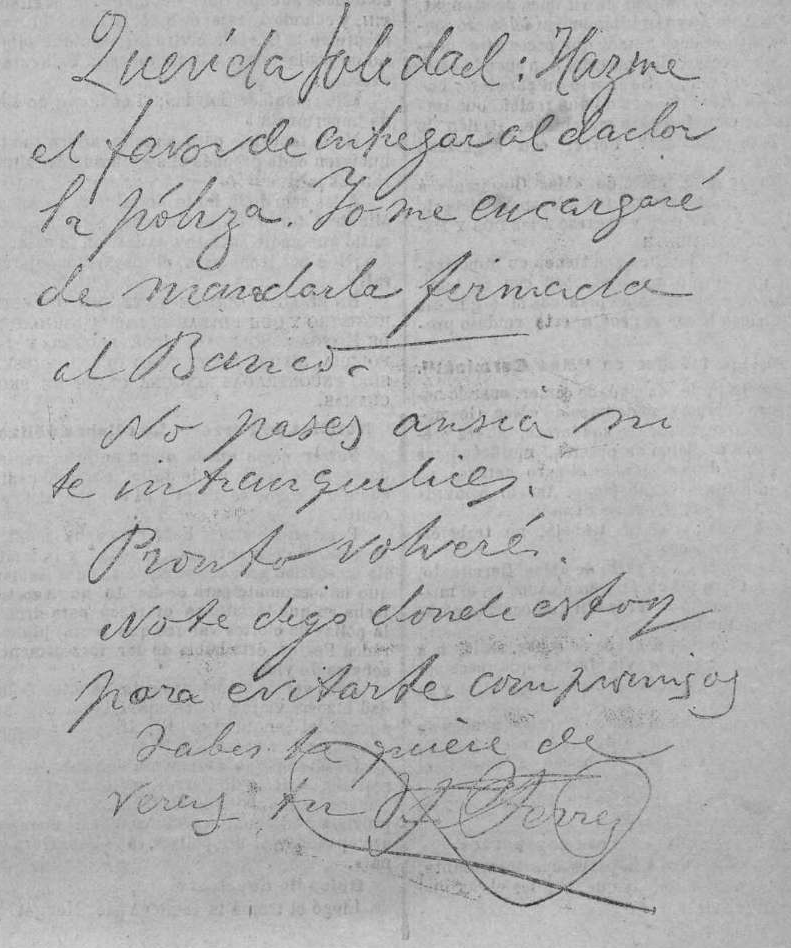 Querida Soledad: Hazme
el favor de entregar al dador
la póliza. Yo me encargaré
de mandarla firmada
al Banco.
No pases ansia ni
te intranquilices.
Pronto volveré.
No te digo donde estoy
para evitarte compromisos
Sabes te quiere de
veras tu F. Ferrer